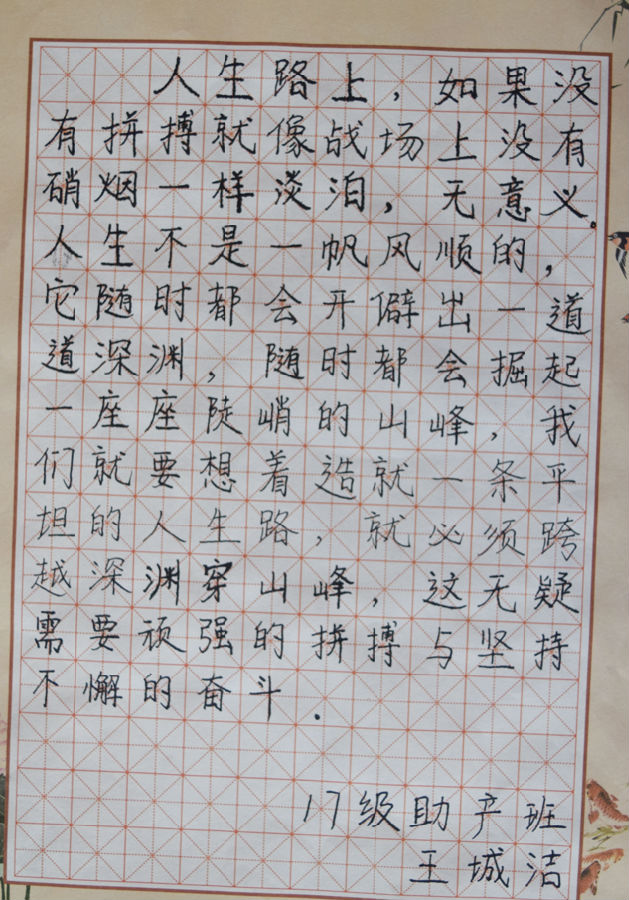 人生路上，如果没
有拼搏就像战场上没有
硝烟一样淡泊，无意义。
人生不是一帆风顺的，
它随时都会开僻出一道
道深渊，随时都会掘起
一座座陡峭的山峰，我
们就要想着造就一条平
坦的人生路，就必须跨
越深渊穿山峰，这无疑
需要顽强的拼搏与坚持
不懈的奋斗．
17级助产班
王城洁